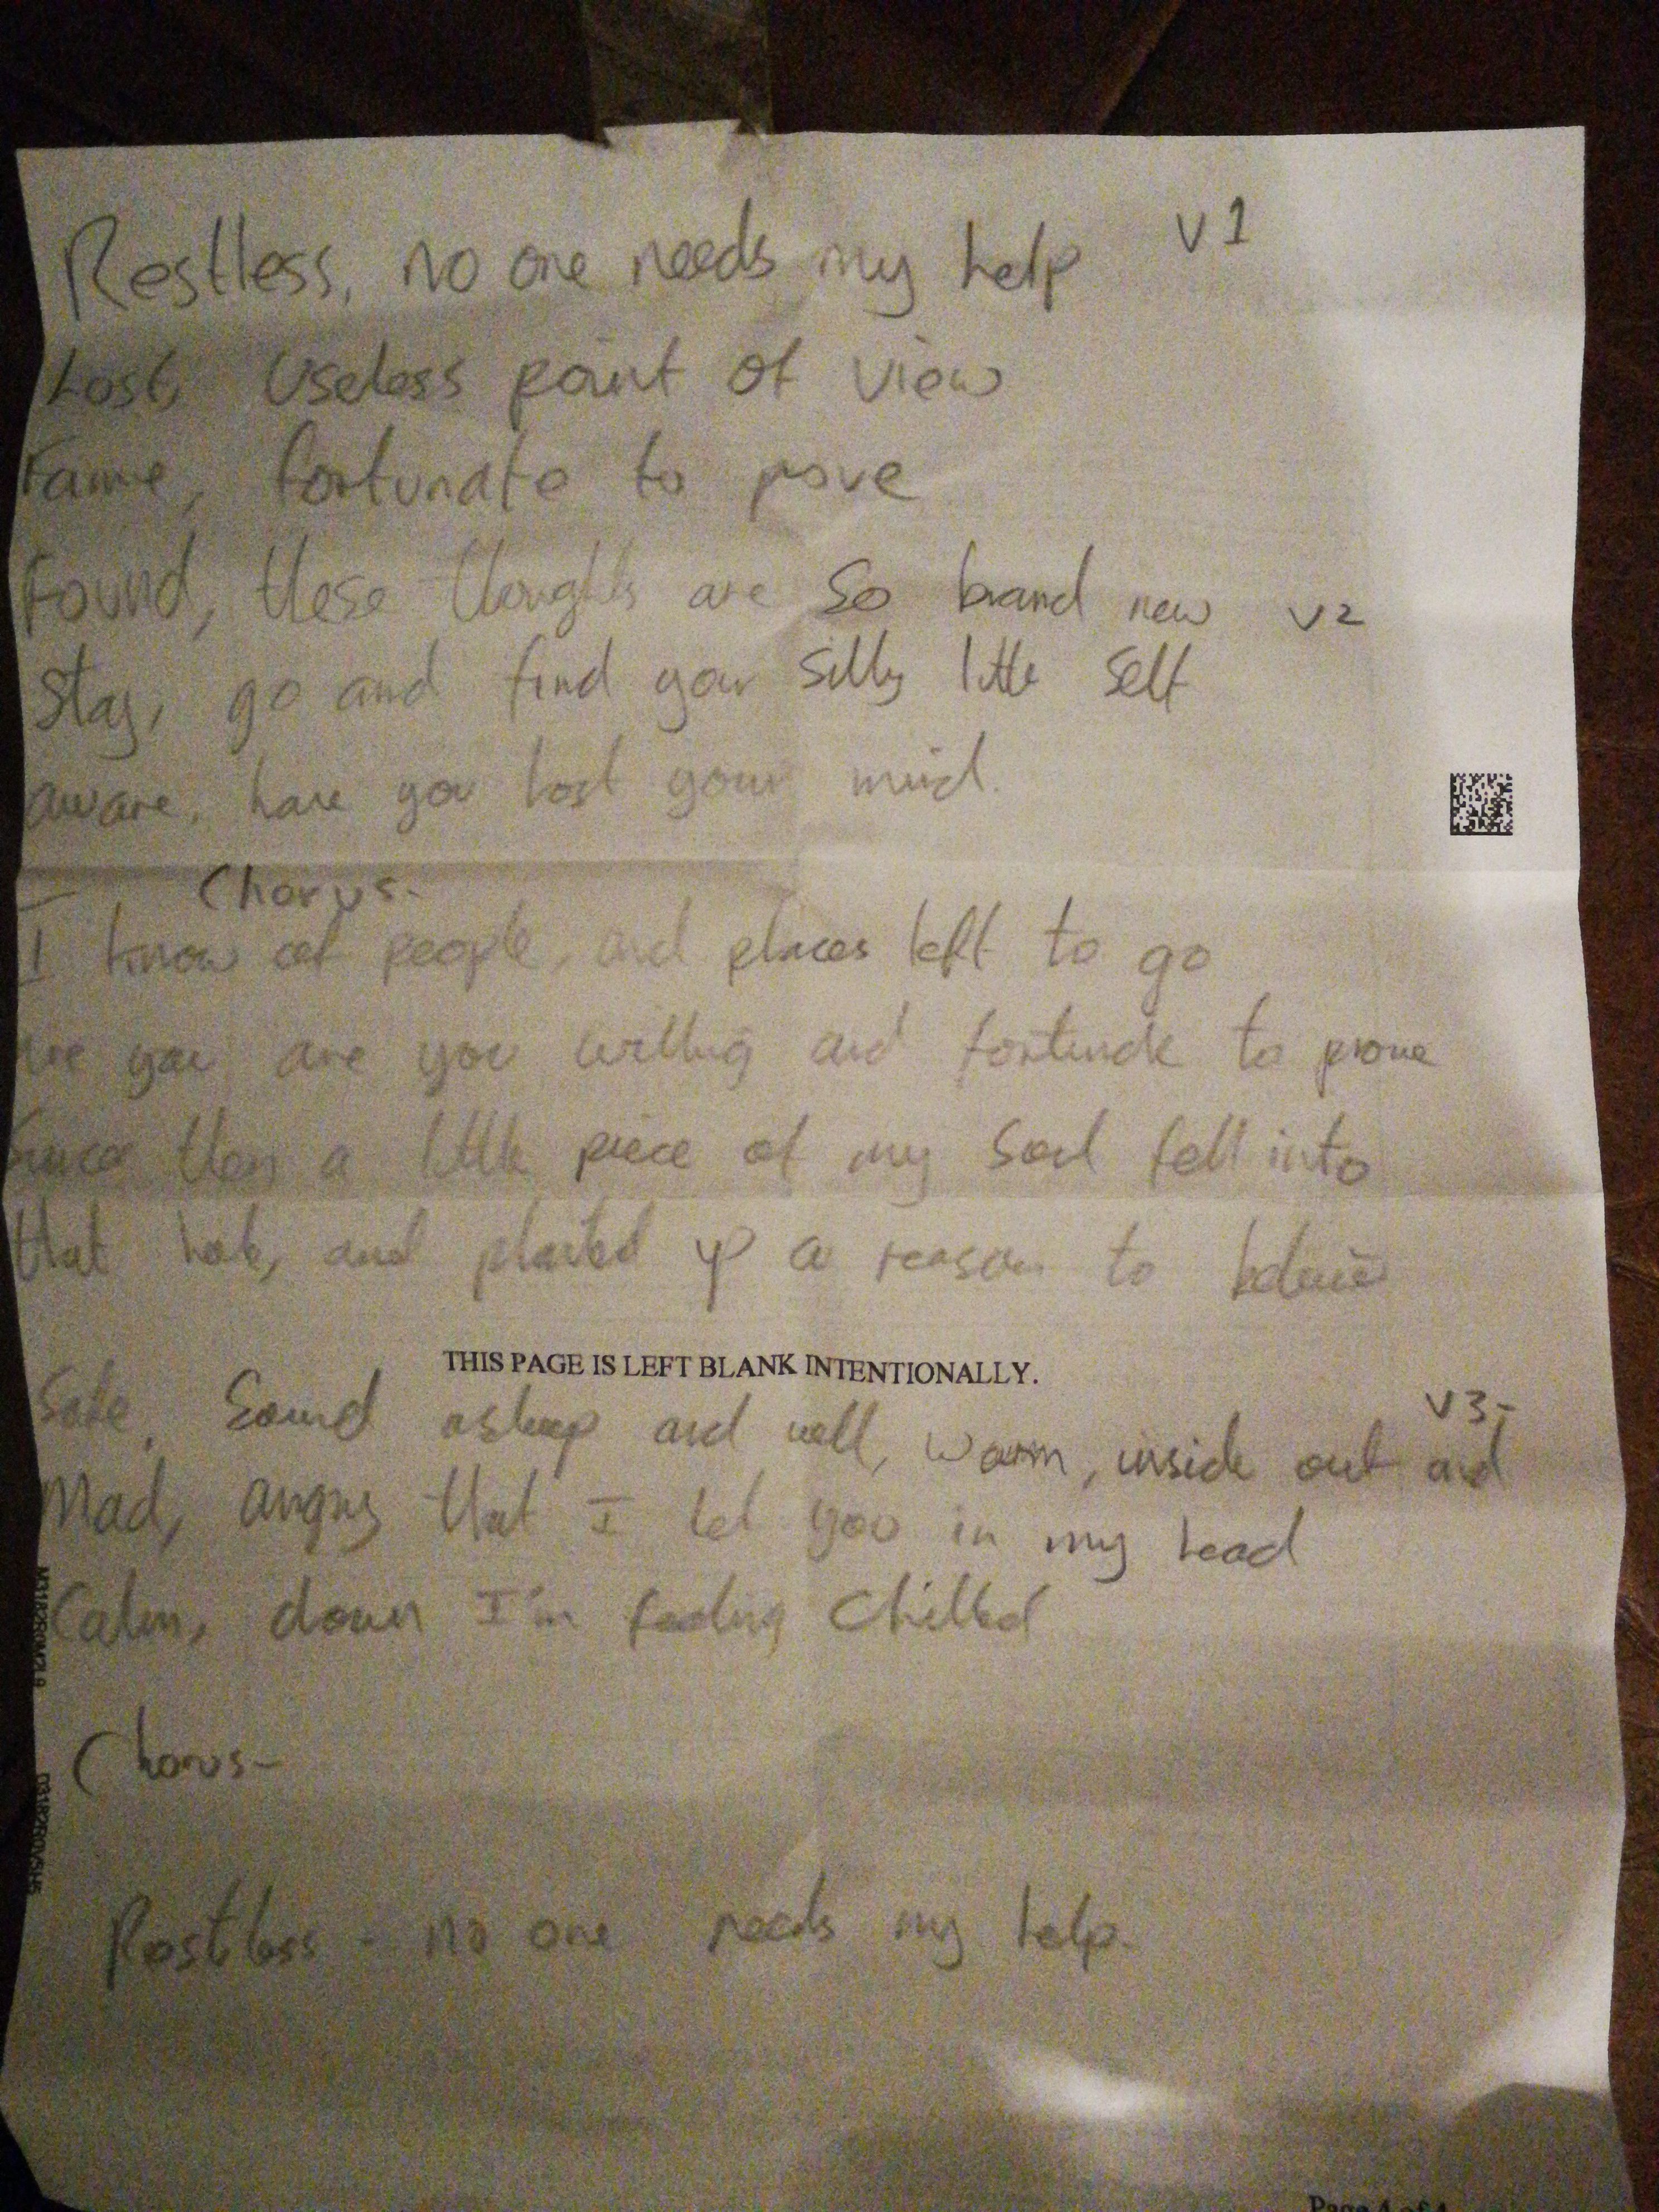 Restless, no one needs my help V1
Lost, Useless point of view
Fame, fortunate to prove
Found, these thoughts are so brand new V2
Stay, go and find your silly little self
aware, have you lost your mind.
Chorus-
I know of people, and places left to go
are you willing and to prove
Since then a little piece of my soul fell into
that hole, and planted up a reason to believe
THIS PAGE IS LEFT BLANK INTENTIONALLY.
V3-
Safe, Sound asleep and well, warm, inside out and
Mad, angry that I let you in my head
Calm, down I'm feeling chilled
Chorus-
Restless - no one needs my help.